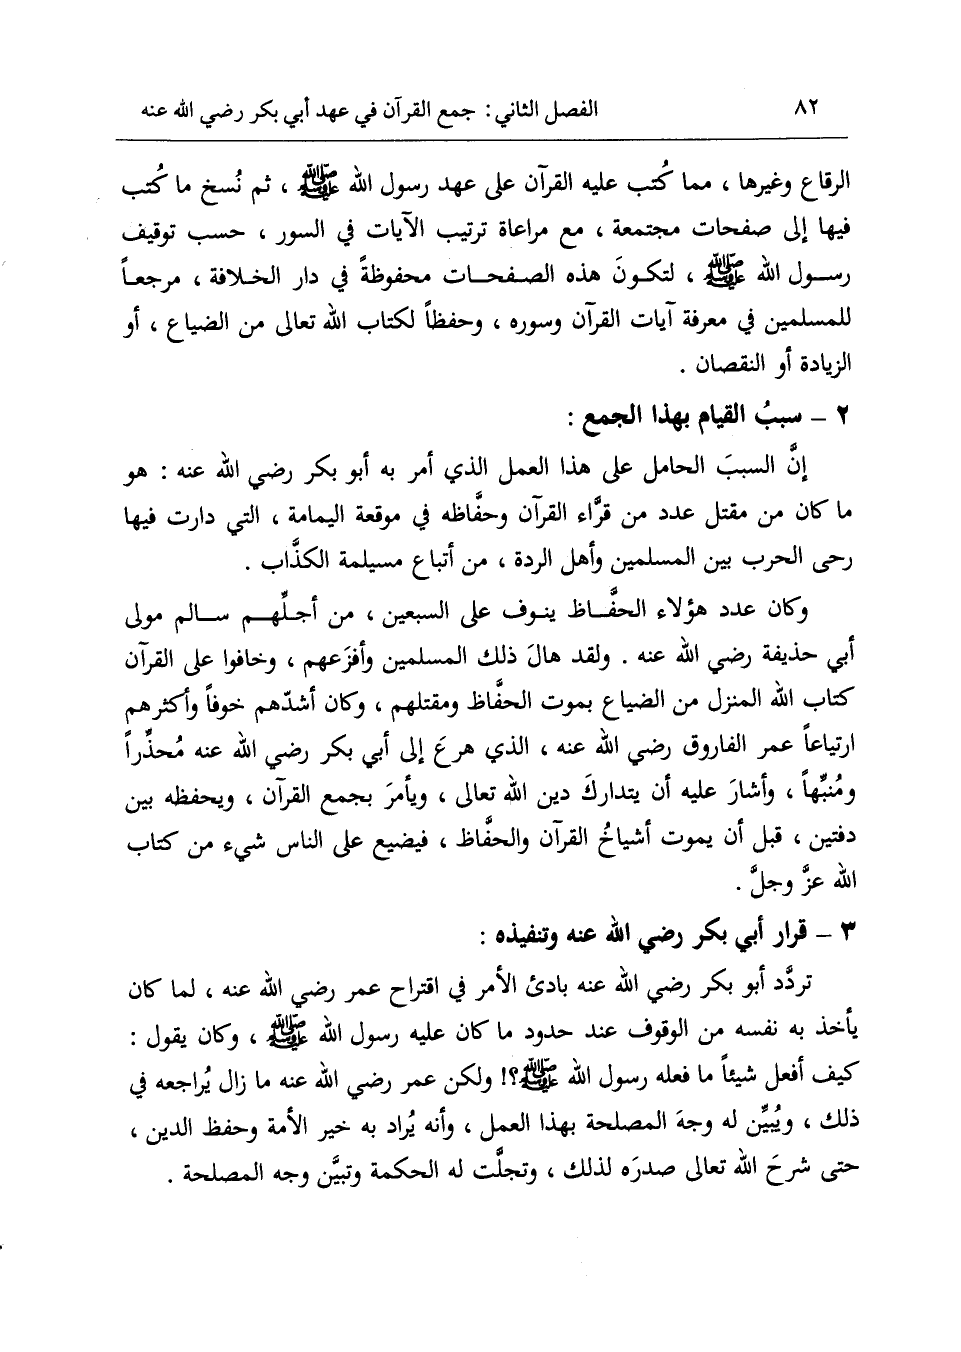 ٨٢ الفصل الثاني : جمع القرآن في عهد أبي بكر رضي الله عنه
الرقاع وغيرها ، مما كُتب عليه القرآن على عهد رسول الله ﷺ ، ثم نُسخ ما كُتب
فيها إلى صفحات مجتمعة ، مع مراعاة ترتيب الآيات في السور ، حسب توقيف
رسول الله ﷺ ، لتكونَ هذه الصفحات محفوظةً في دار الخلافة ، مرجعاً
للمسلمين في معرفة آيات القرآن وسوره ، وحفظاً لكتاب الله تعالى من الضياع ، أو
الزيادة أو النقصان .
٢ – سببُ القيام بهذا الجمع :
إنَّ السببَ الحامل على هذا العمل الذي أمر به أبو بكر رضي الله عنه : هو
ما كان من مقتل عدد من قرَّاء القرآن وحفَّاظه في موقعة اليمامة ، التي دارت فيها
رحى الحرب بين المسلمين وأهل الردة ، من أتباع مسيلمة الكذَّاب .
وكان عدد هؤلاء الحفَّاظ ينوف على السبعين ، من أجلِّهم سالم مولى
أبي حذيفة رضي الله عنه . ولقد هالَ ذلك المسلمين وأفزَعهم ، وخافوا على القرآن
كتاب الله المنزل من الضياع بموت الحفَّاظ ومقتلهم ، وكان أشدّهم خوفاً وأكثرهم
ارتياعاً عمر الفاروق رضي الله عنه ، الذي هرعَ إلى أبي بكر رضي الله عنه مُحذِّراً
ومُنبِّهاً ، وأشارَ عليه أن يتداركَ دين الله تعالى ، ويأمرَ بجمع القرآن ، ويحفظه بين
دفتين ، قبل أن يموت أشياخُ القرآن والحفَّاظ ، فيضيع على الناس شيء من كتاب
الله عزَّ وجلَّ .
٣ – قرار أبي بكر رضي الله عنه وتنفيذه :
تردَّد أبو بكر رضي الله عنه بادئ الأمر في اقتراح عمر رضي الله عنه ، لما كان
يأخذ به نفسه من الوقوف عند حدود ما كان عليه رسول الله ﷺ ، وكان يقول :
كيف أفعل شيئاً ما فعله رسول الله ﷺ؟! ولكن عمر رضي الله عنه ما زال يُراجعه في
ذلك ، ويُبيِّن له وجهَ المصلحة بهذا العمل ، وأنه يُراد به خير الأمة وحفظ الدين ،
حتى شرحَ الله تعالى صدرَه لذلك ، وتجلَّت له الحكمة وتبيَّن وجه المصلحة .